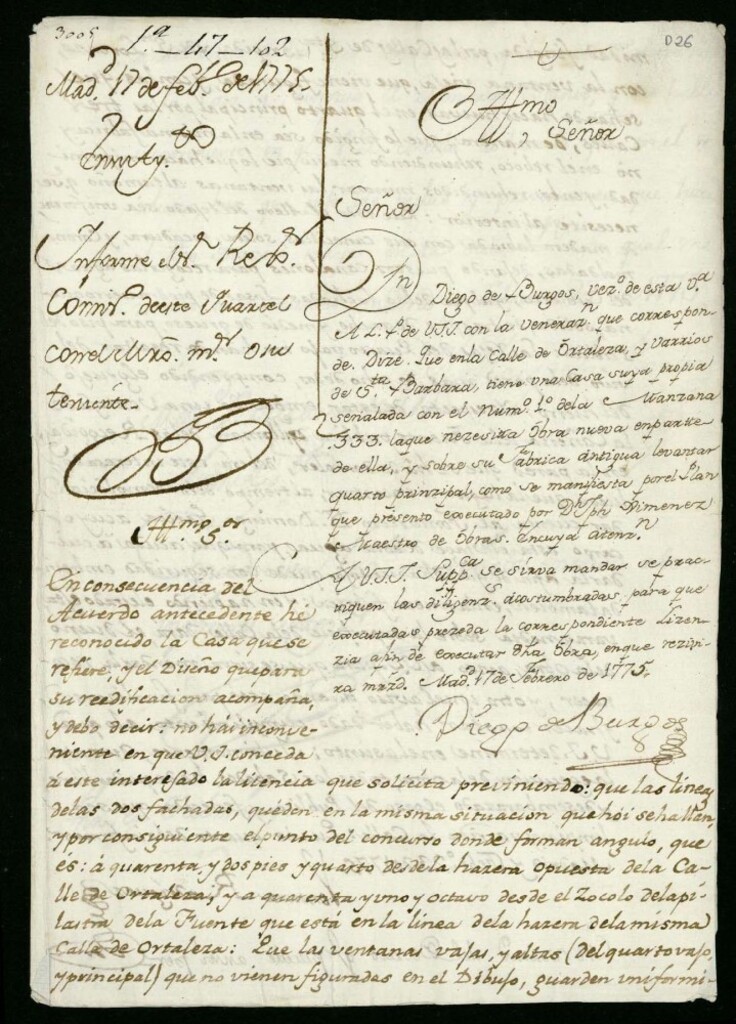 3005
1ª 47-102
D26
Madᵈ 17 de febº de 1775.
Illmo
Señor
Informe el Sʳ Rexʳ
Comisº. de este Quartel
con el Mrô. mʳ o su
teniente.
Señor
Dn Diego de Burgos, vezº. de esta vª
A L. P. de VSI. con la veneraⁿ que correspon-
de. Dize. Que en la Calle de Ortaleza, y varrios
de Sᵗᵃ Barbara, tiene una Casa suya propia
señalada con el Numº. 1º. de la Manzana
333. la que nezesita obra nueva en parte
de ella, y sobre su fabrica antigua levantar
quarto prinzipal, como se manifiesta por el Plan
que presento executado por Dⁿ Jph Ximenez
Maestro de Obras. En cuya atenzⁿ
A VSI. Suppᶜᵃ se sirva mandar se prac-
tiquen las diligenzˢ. acostumbradas, para que
executadas prezeda la correspondiente Lizen-
zia a fin de executar dha obra, en que rezivi-
ra mrzd. Madᵈ 17 de Febrero de 1775.
Diego de Burgos
Illmo Sᵒʳ
En consecuencia del
Acuerdo antecedente hé
reconocido la Casa que se
refiere, y el Diseño que para
su reedificacion acompaña,
y debo decir: no hai inconve-
niente en que V.I. conceda
á este interesado la licencia que solicita previniendo: que las lineas
de las dos fachadas, queden en la misma situacion que hoi se hallan,
y por consiguiente el punto del concurso donde forman angulo, que
es: á quarenta y dos pies y quarto desde la hazera opuesta de la Ca-
lle de Ortaleza, y a quarenta y uno y octavo desde el Zocolo de la pi-
lastra de la Fuente que está en la linea de la hazera de la misma
Calle de Ortaleza: Que las ventanas vajas, y altas (del quarto vajo,
y principal) que no vienen figuradas en el Dibujo, guarden uniformi-